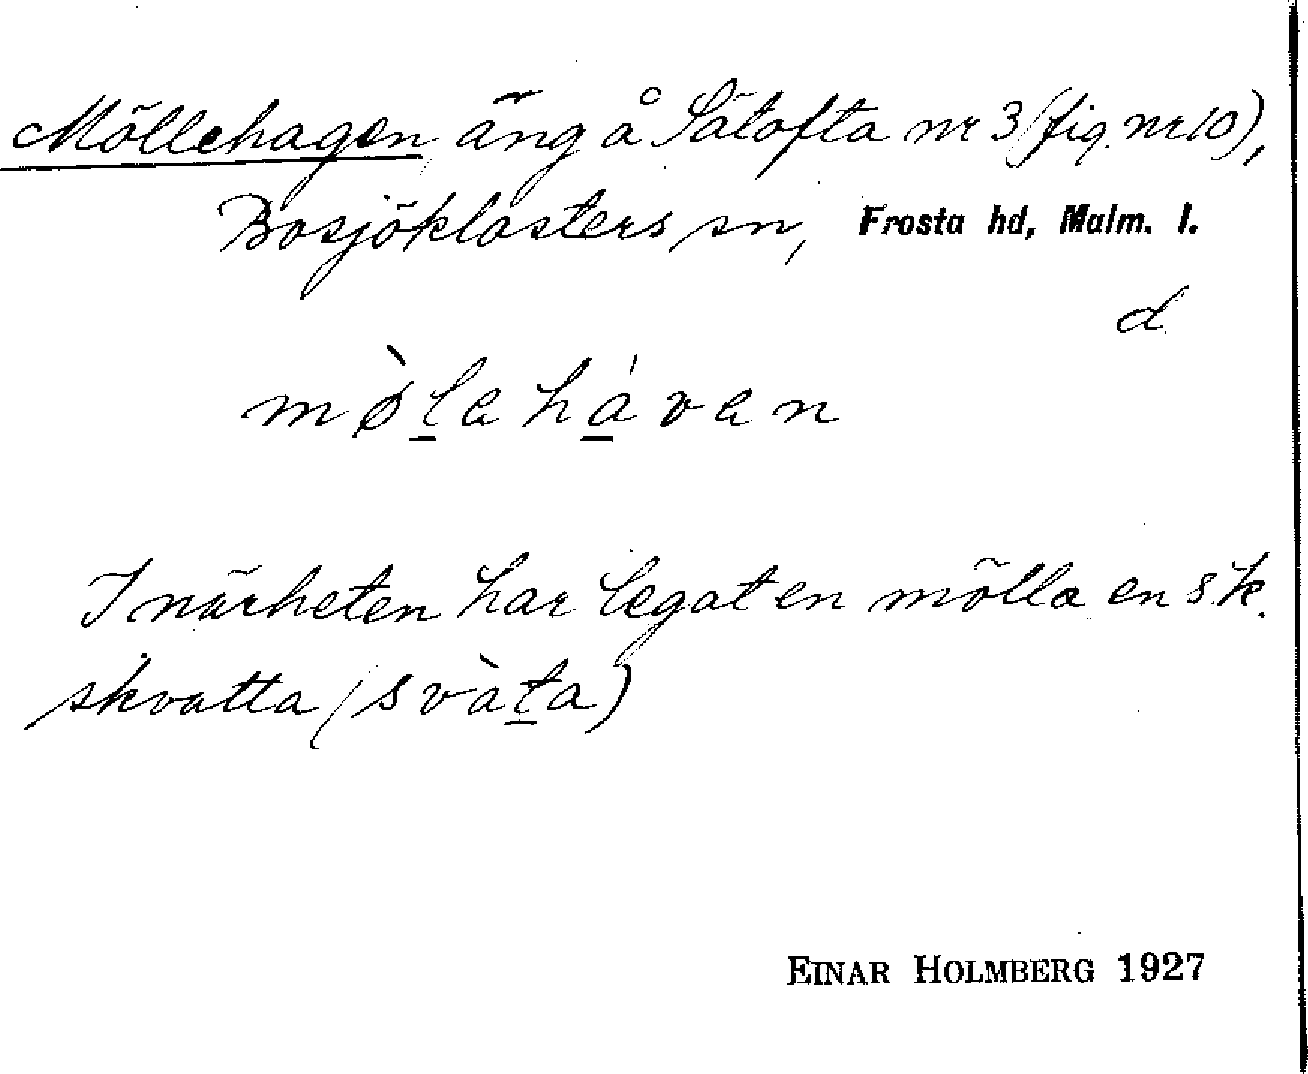 Möllehagen, äng å Sätofta nr 3 (fig. nr 10),
Bosjöklosters sn, Frosta hd, Malm. l.
d
mø̀l̲ahá̲van
I närheten har legat en mölla en s.k.
skvatta (svàt̲a)
EINAR HOLMBERG 1927